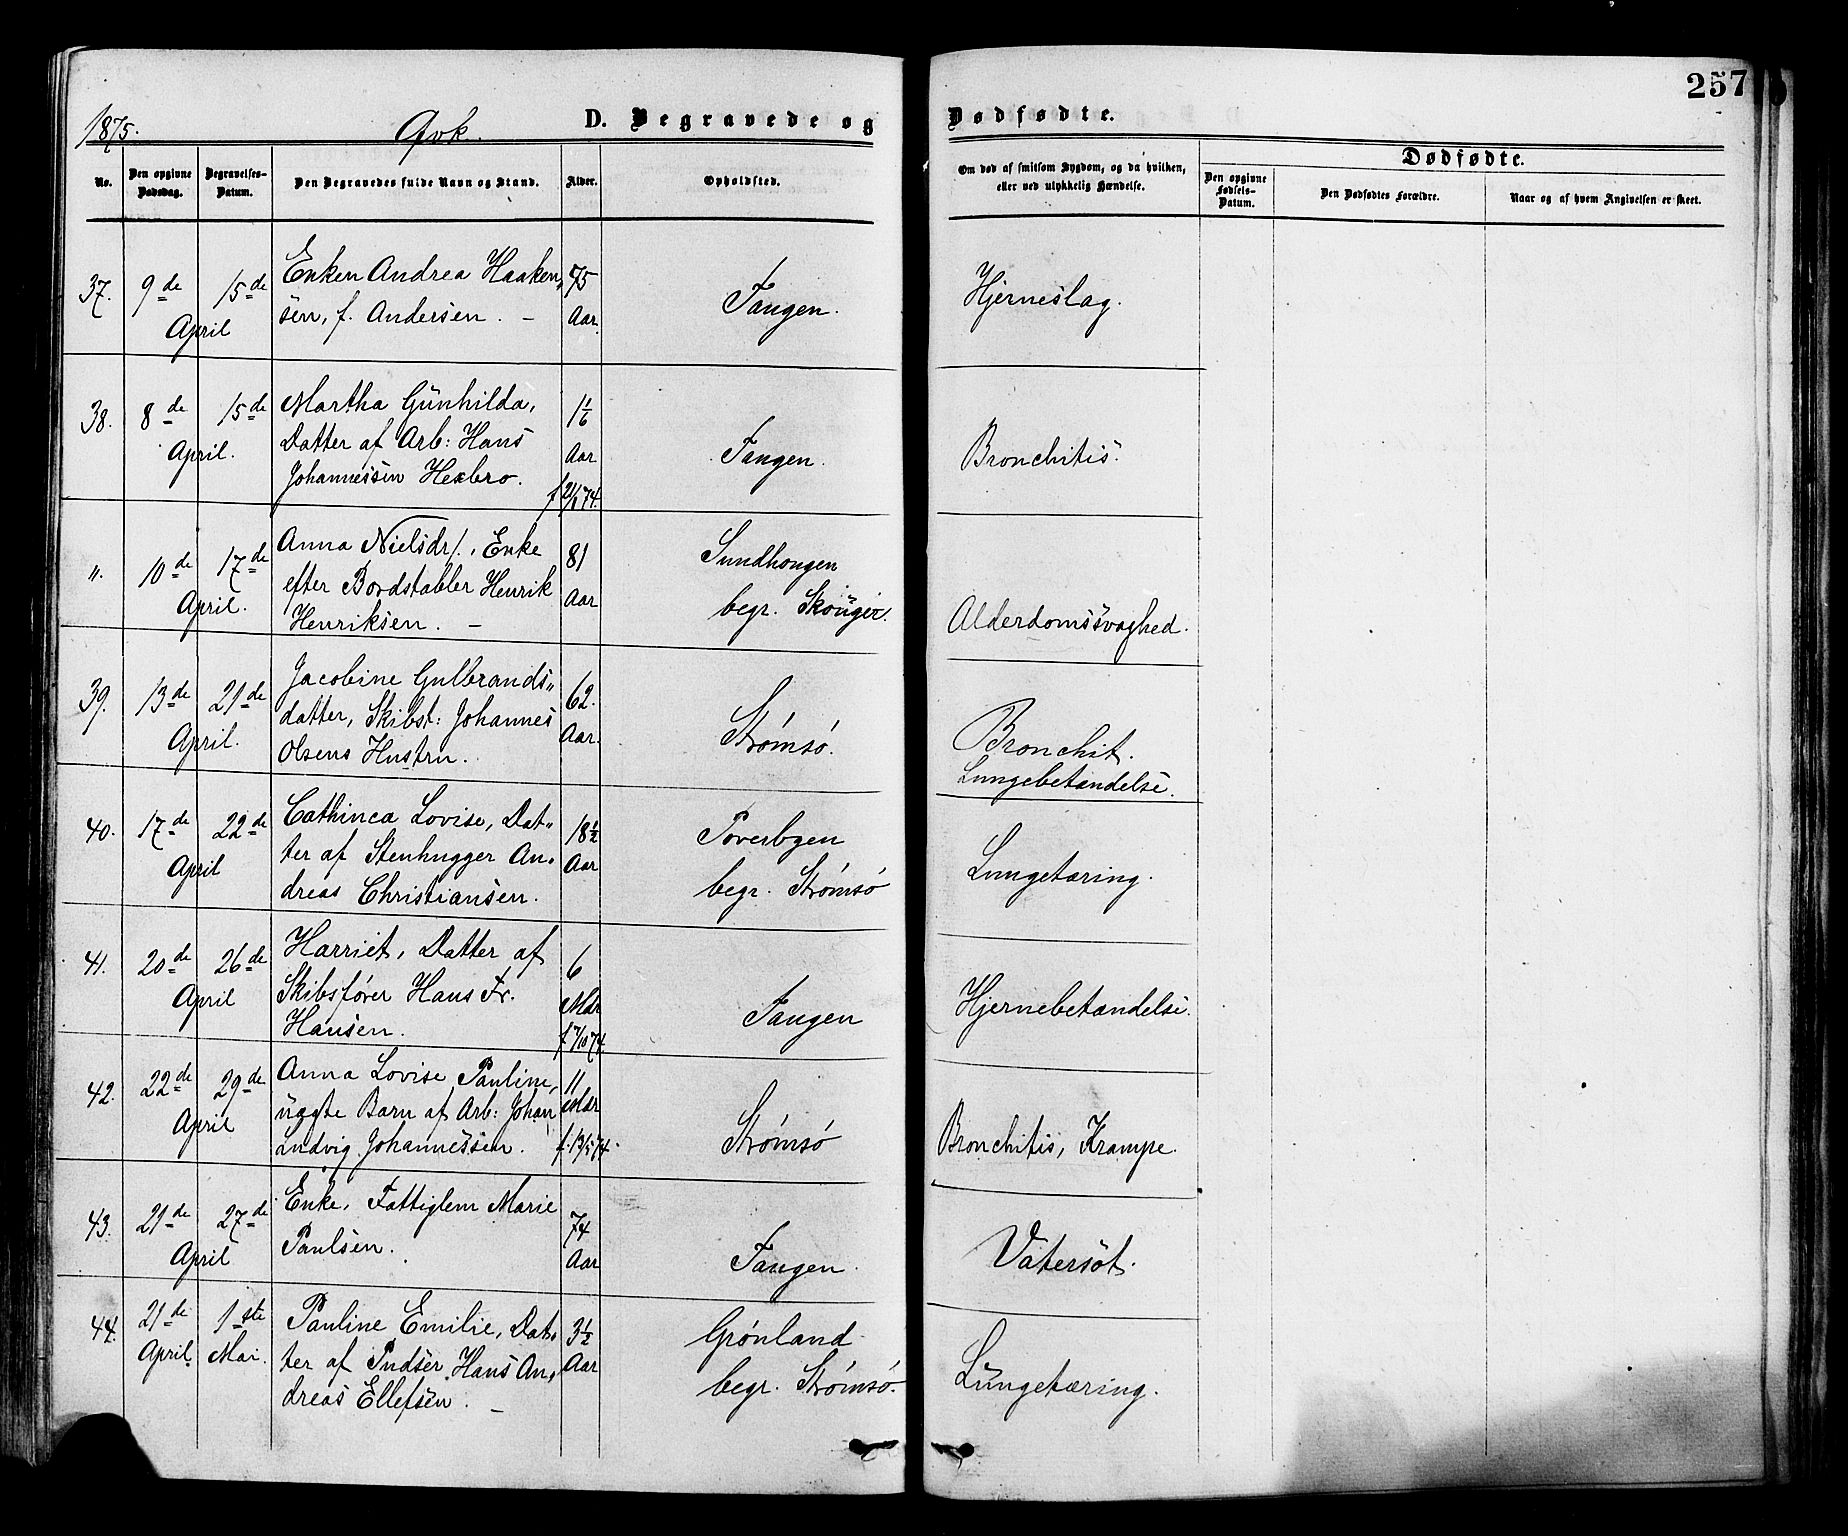 257
1875.
Qvk.
D. Begravede og
Dødfødte.
No.
Den opgivne Dødsdag.
Begravelses-Datum.
Den Begravedes fulde Navn og Stand.
Alder.
Opholdsted.
Om død af smitsom Sygdom, og da hvilken,
eller ved ulykkelig Hændelse.
Dødfødte.
Den opgivne Fødsels-Datum.
Den Dødfødtes Forældre.
Naar og af hvem Angivelsen er skeet.
37. 9de 15de April
Enken Andrea Haaken,
sen, f. Andersen. –
75 Aar.
Tangen.
Hjerneslag.
38. 8de 15de April.
Martha Gunhilda,
Datter af Arb: Hans
Johannessen Hexbro.
1 1/6 Aar f 21/1 74.
Tangen.
Bronchitis.
". 10de 17de April.
Anna Nielsdr/., Enke
efter Bordstabler Henrik
Henriksen. –
81 Aar
Sundhougen
begr. Skouger.
Alderdomssvaghed.
39. 13de 21de April.
Jacobine Gulbrands"
datter, Skibst: Johannes
Olsens Hustru.
62. Aar.
Strømsø.
Bronchit.
Lungebetændelse.
40. 17de 22de April
Cathinca Lovise, Dat"
ter af Stenhugger An.
dreas Christiansen.
18½ Aar
Poverbyen
begr. Strømsø
Lungetæring.
41. 20de 26de April
Harriet, Datter af
Skibsfører Hans Fr.
Hansen.
6 Mdr f 7/10 74.
Tangen
Hjernebetændelse.
42. 22de 29de April
Anna Lovise Pauline,
uægte Barn af Arb: Johan
Ludvig Johannessen.
11 Mdr f. 13/5 74.
Strømsø
Bronchitis, Krampe.
43. 21de 27de April
Enke, Fattiglem Marie
Paulsen.
74 Aar
Tangen.
Vatersot.
44. 21de April. 1ste Mai.
Pauline Emilie, Dat.
ter af Pudser Hans An,
dreas Ellefsen. –
3½ Aar
Grønland
begr. Strømsø.
Lungetæring.